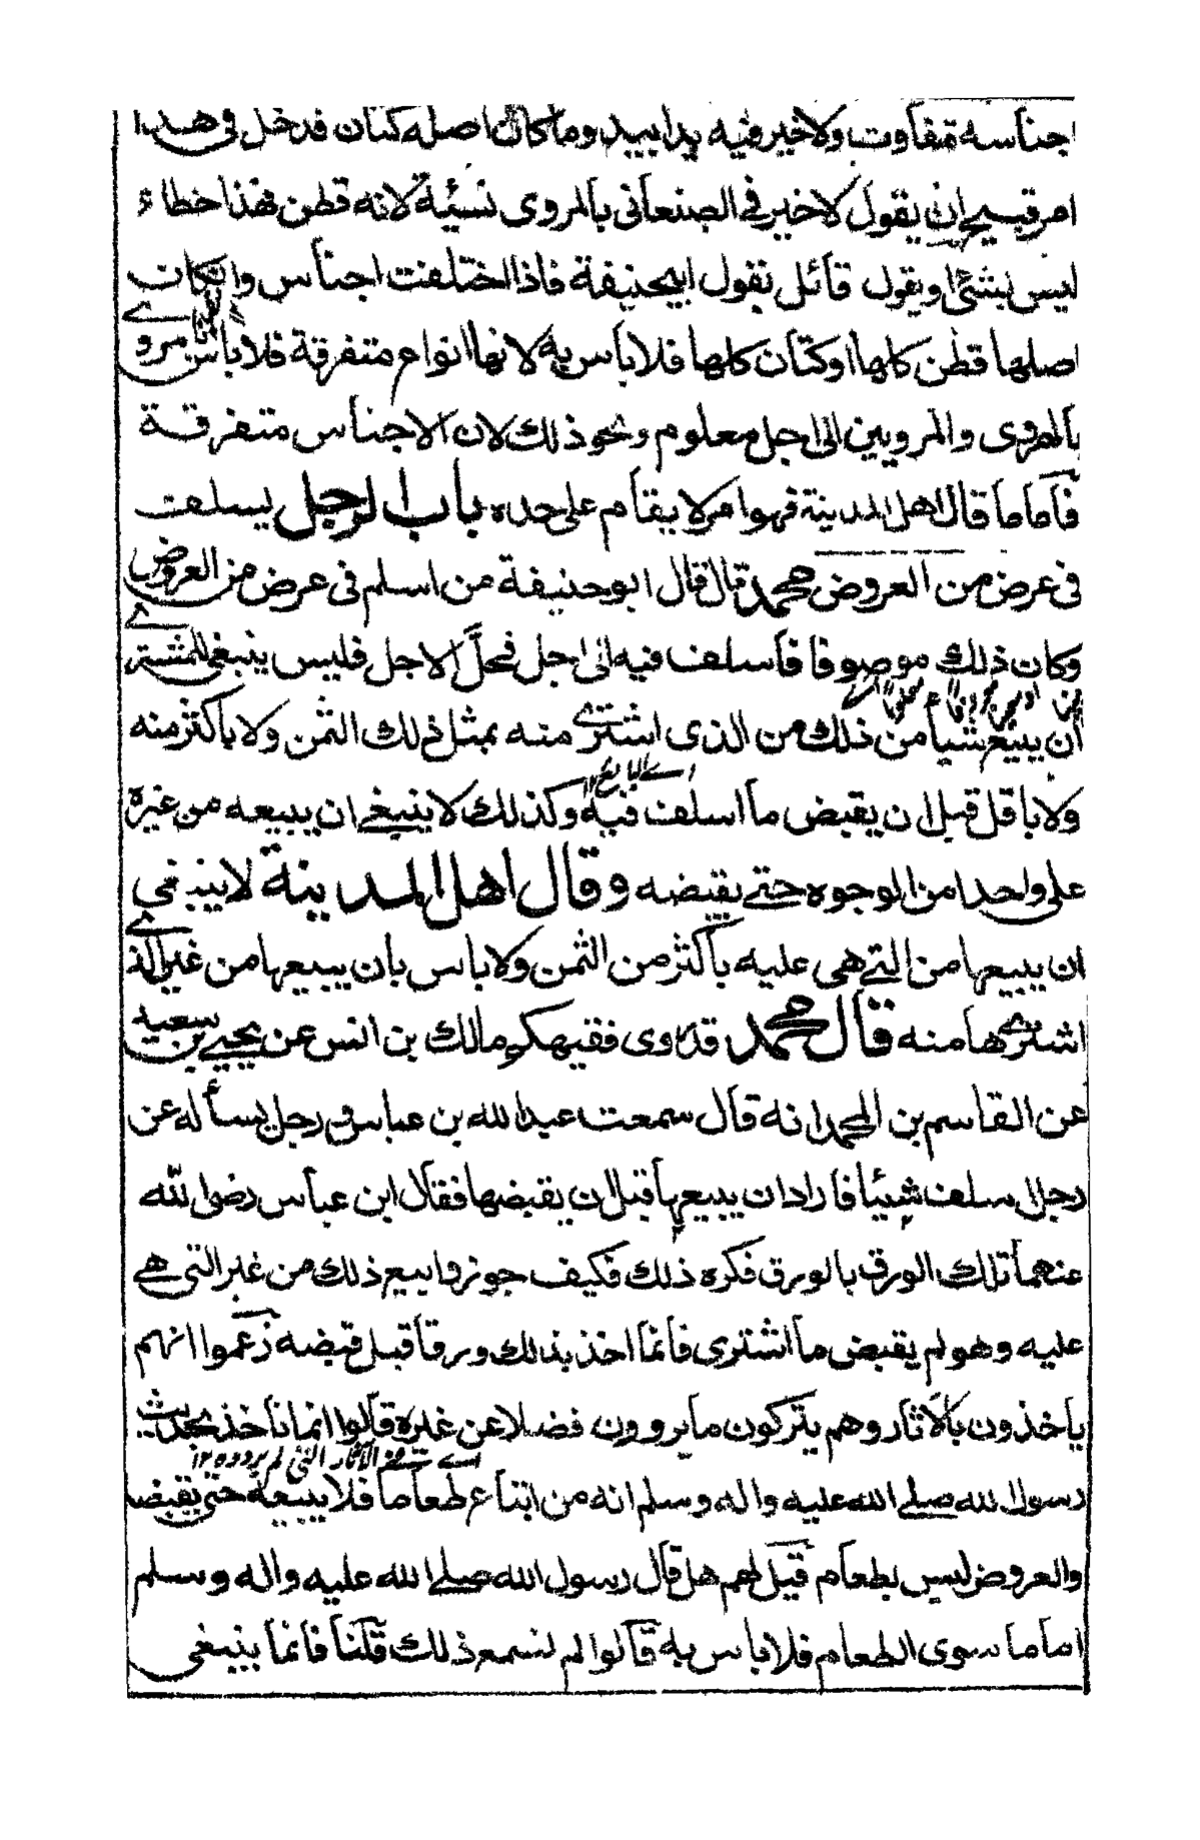 اجناسه متفاوت ولاخير فيه يدا بيد وما كان اصله كتان فدخل فى هذا
امر قبيح ان يقول لاخير فى الصنعانى بالمروى نسيئة لانه قطن فهذا خطاء
ليس بشئ او يقول قائل بقول ابيحنيفة فاذا اختلفت اجناس وانكان
اصلها قطن كلها اوكتان كلها فلا بأس به لانها انواع متفرقة فلا بأس مروى
بالهروى والمرويين الى اجل معلوم ونحو ذلك لان الاجناس متفرقة
فاما ما قال اهل المدينة فهوامر لا يقام على حده باب الرجل يسلف
فى عرض من العروض محمد قال قال ابوحنيفة من اسلم فى عرض من العروض
وكان ذلك موصوفا فأسلف فيه الى اجل فحلَّ الاجل فليس ينبغى للمشترى
ان يبيع شيأ من ذلك من الذى اشترى منه بمثل ذلك الثمن ولا باكثر منه
اے البائع ١٢
ولا باقل قبل ان يقبض ما اسلف فيه وكذلك لا ينبغى ان يبيعه من غيره
على واحد من الوجوه حتى يقبضه وقال اهل المدينة لا ينبغى
ان يبيعها من التى هى عليه بأكثر من الثمن ولا باس بان يبيعها من غير الذى
اشتراها منه قال محمد قد روى فقيهكم مالك بن انس عن يحيى بن سعيد
عن القاسم بن المحمد انه قال سمعت عبد الله بن عباس و رجل يسأله عن
رجل سلف شيئا فاراد ان يبيعها قبل ان يقبضها فقال ابن عباس رضى الله
عنهما تلك الورق بالورق فكره ذلك فكيف جوزوا بيع ذلك من غير التى هى
عليه وهو لم يقبض ما اشترى فانما اخذ بذلك ورقا قبل قبضه زعموا انهم
ياخذون بالآثار وهم يتركون ما يروون فضلا عن غيره قالوا انما ناخذ بحديث
اے الآثار التى لم يرووه ١٢
رسول الله صلى الله عليه واله وسلم انه من ابتاع طعاما فلا يبيعه حتى يقبضه
والعروض ليس بطعام قيل لهم هل قال رسول الله صلى الله عليه واله وسلم
اما ما سوى الطعام فلا باس به قالوا لم نسمع ذلك قلنا فانما ينبغى